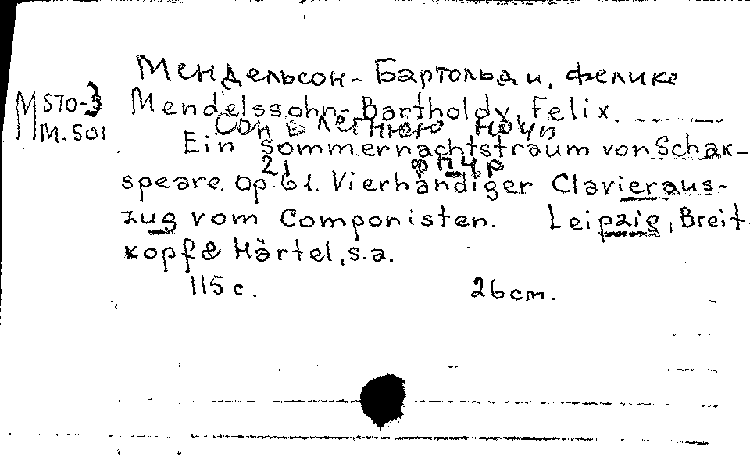 Мендельсон-Бартольди, Феликс
M STO-3 Mendelssohn-Bartholdy, Felix.
M.501 Сон в летнюю ночь
Ein Sommernachtstraum von Schak-
21
speare. Op. 61. Vierhändiger Clavieraus-
zug vom Componisten. Leipzig, Breit-
kopf & Härtel, s.a.
115 c. 26 cm.